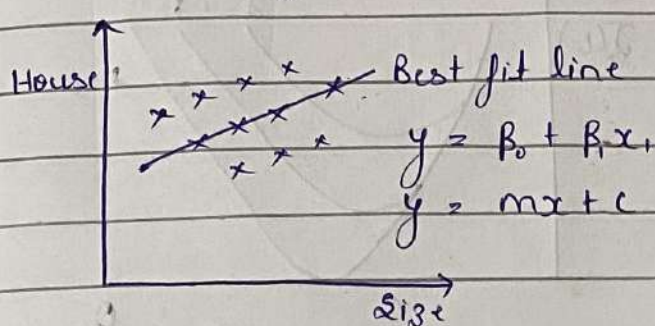 House
Best fit line
y = β₀ + β₁x₁
y = mx + c
Size